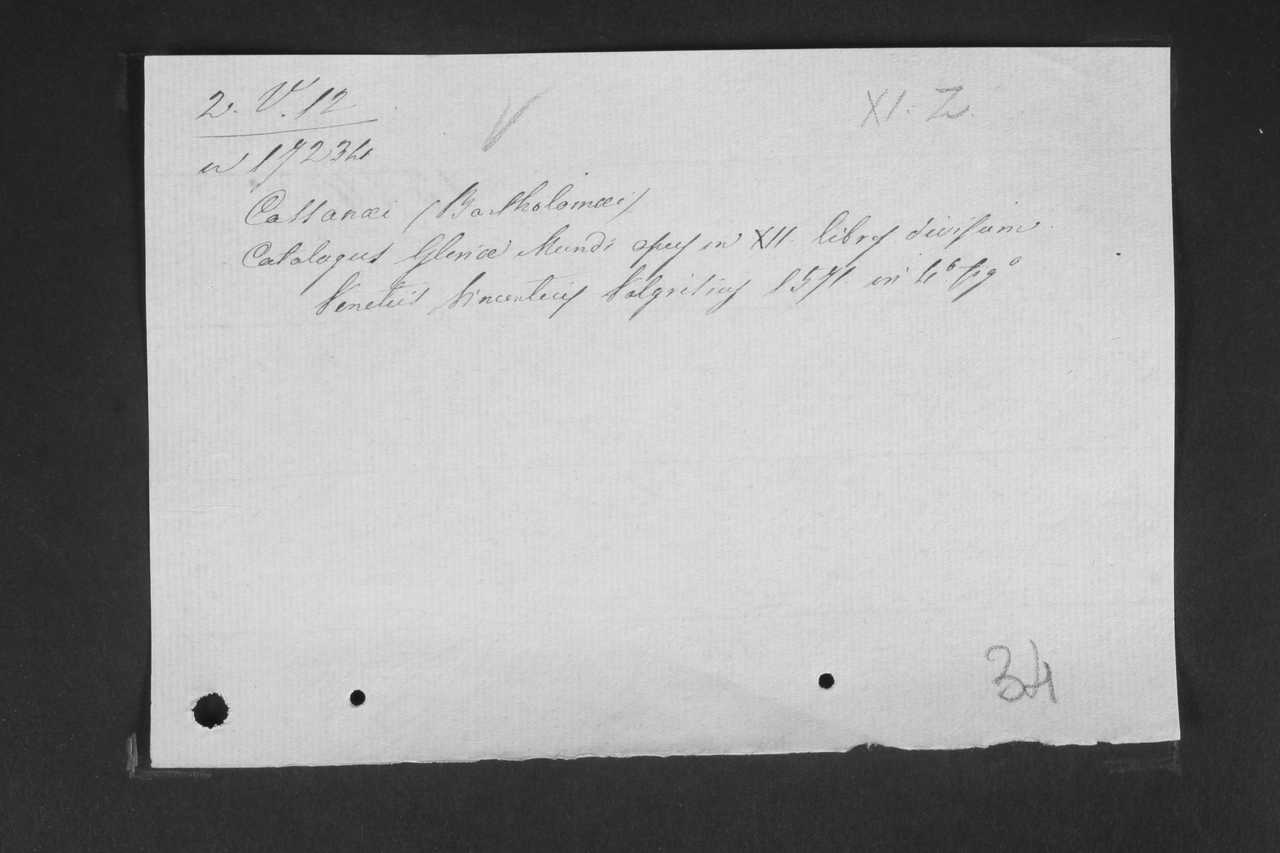 2. V. 12
XI. Z.
n 17234
Cassanæi (Bartholomæi)
Catalogus Gloriæ Mundi opus in XII. libros divisum.
Venetiis Vincentius Valgrisius 1571 in 4° fig°
34